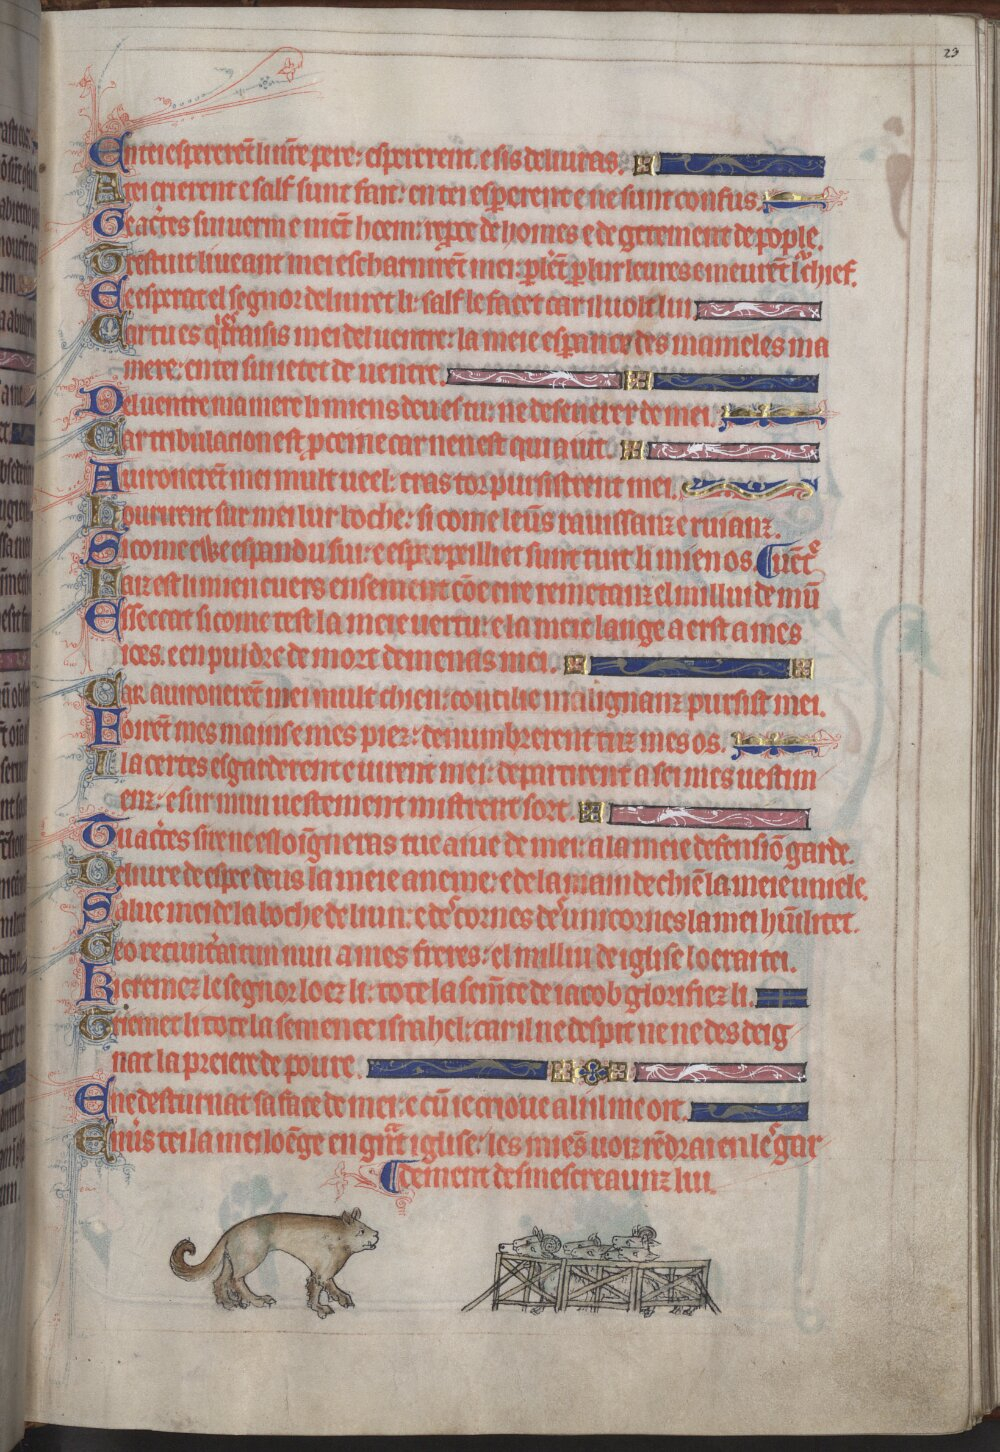 23
En tei espererẽt li nr̃e pere: esperirent. e sis deliuras.
A tei crierent e salf sunt fait: en tei esperent e ne sunt confus.
Ge acr̃tes sui uerm e niẽt hoem: repce de homes e de getement de pople.
Trestuit li ueant mei escharnirẽt mei: plẽt p lur leures e meurẽt le chief.
Ee esperat el segnor deliuret li: salf le facet car il uolt lui
Car tu es q̃ traisis mei del uentre: la meie esperance des mameles ma
mere: en tei sui ietet de uentre.
Del uentre ma mere li miens deu es tu: ne deseuerer de mei.
Car tribulacion est pceine car nen est qui aiut.
Auironerẽt mei mult ueel: cras tor pursistrent mei.
Louurent sur mei lur boche: si come leũs rauissanz e ruianz.
Si come ewe espandu sui: e esparpilliet sunt tuit li mien os. Vent̃
Faiz est li mien cuers ensement cõe cire remetanz el milliu de mũ
Essecat si come test la meie uertu: e la meie lange aerst a mes
ioes. e en puldre de mort demenas mei.
Car auironerẽt mei mult chien: concilie malignanz pursist mei.
Foirẽt mes mains e mes piez: denumbrerent tuz mes os.
Il acertes esgarderent e uirent mei: departirent a sei mes uestim
enz: e sur mun uestement mistrent sort.
Tu acr̃tes sire ne esloigneras tue aiue de mei: a la meie defensiõ garde.
Deliure de espee deus la meie aneme: e de la main de chiẽ la meie uniele.
Salue mei de la boche de liun: e des cornes des unicornes la mei humilitet.
Geo recunterai tun nun a mes freres: el milliu de iglise loerai tei.
Ki cremez le segnor loez li: tote la semẽce de iacob glorifiez li.
Criemet li tote la semence israhel: car il ne despit ne ne desdeig
nat la preiere de poure.
E ne desturnat sa face de mei: e cũ ie crioue a lui il me oit.
Enuers tei la mei loẽge en grãt iglise: les miens uoiz rẽdrai en le gar
dement des mescreaunz lui.